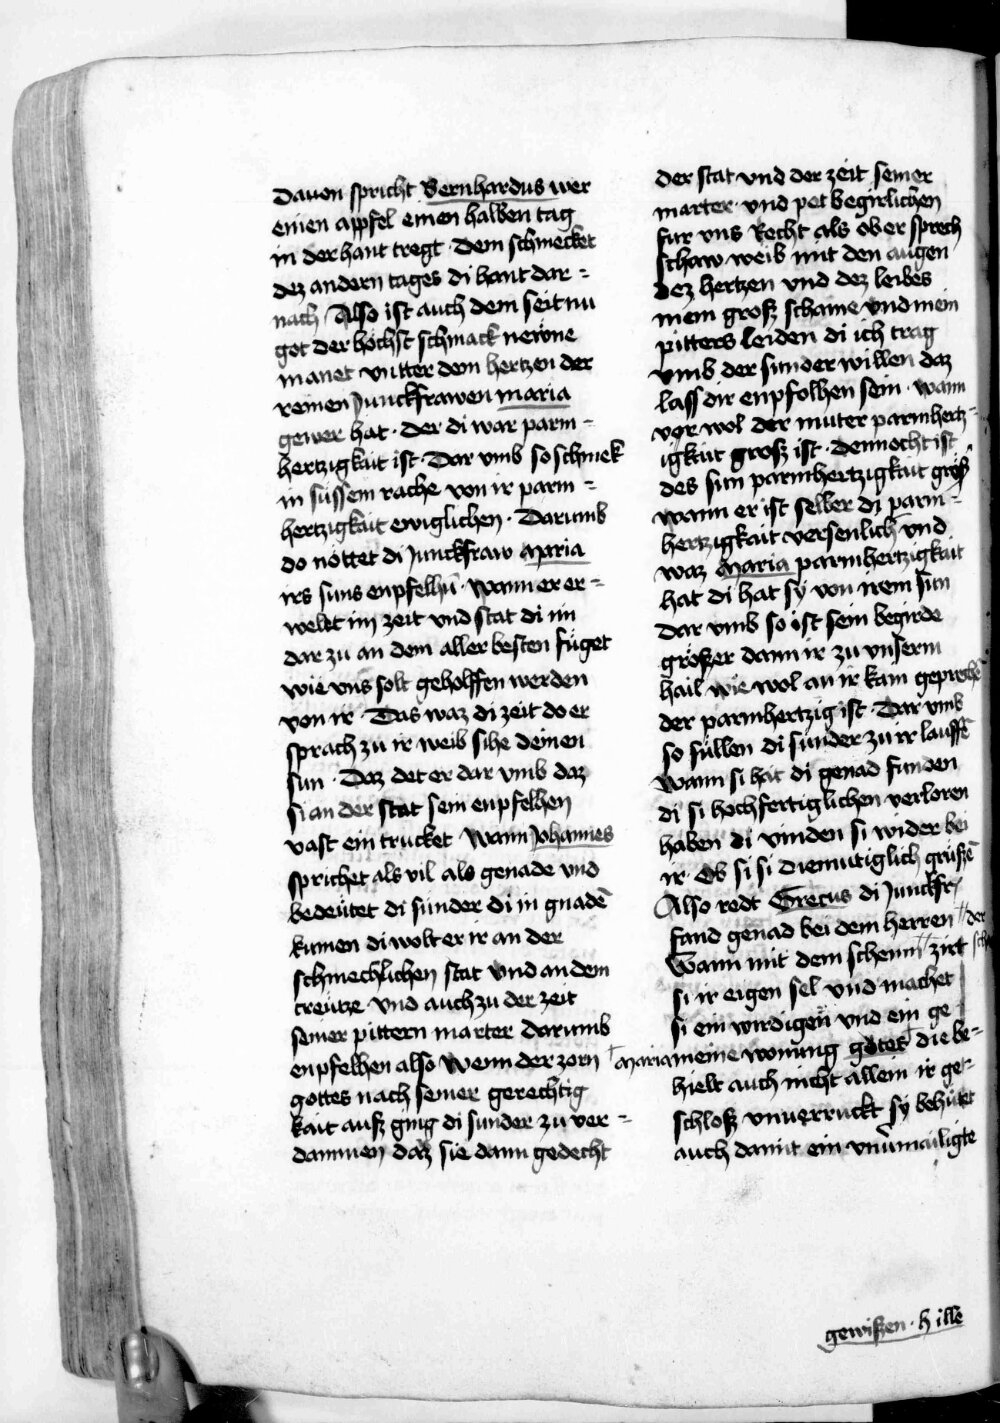 Dauon spricht Bernhardus wer
einen appfel einen halben tag
in der hant tregt · dem schmecket
dez andern tages di hant dar =
nach / Also ist auch dem seit nu
got der höchst schmack newne
manet vntter dem hertzen der
reinen Junckfrawen maria
gewer hat · der di war parm =
hertzigkait ist · Dar vmb so schmek
in süssem rache von ir parm =
hertzigkait ewiglichen · Darumb
do nöttet di Junckfraw Maria
irs suns enpfelhu̅ · Wann er er =
welet im zeit vnd stat di im
dar zu an dem aller besten füget
wie vns solt geholffen werden
von ir · Das waz di zeit do er
sprach zu ir weib sihe deinen
sun · Daz det er dar vmb daz
si an der stat sein enpfelhen
vast ein trucket Wann Johannes
sprichet als vil als genade vnd
bedeütet di sünder di in gnade̅
kumen di wolt er ir an der
schmechlichen stat vnd an dem
creütze vnd auch zu der zeit
seiner pittern marter darumb
enpfelhen also wenn der zorn
gottes nach seiner gerechtig
kait ausz ging di sunder zu ver =
damnen daz sie dann gedecht
der stat vnd der zeit seiner
marter · vnd pet begirlichen
für vns Recht als ob er sprech
schaw weib mit den augen
dez hertzen vnd dez leibes
mein grosz schame vnd mein
pitters leiden di ich trag
vmb der sunder willen daz
lass dir enpfolhen sein · wann
wol der muter parmhertz =
igkait grosz ist · dennocht ist
des sun parmhertzigkait grösz
wann er ist selber di parm =
hertzigkait versenlich vnd
waz Maria parmhertzigkait
hat di hat sy von irem sun
Dar vmb so ist sein begirde
gröszer dann ir zu vnserm
hail wie wol an ir kain
der parmhertzig ist · Dar vmb
so süllen di sünder zu ir lauffe̅
Wann si hat di genad funden
di si hochfertiglichen verloren
haben di vinden si wider bei
ir · Ob si si diemutiglich grüsze̅
Also redt Grecus di Junckfr
fand genad bei dem herren " der
Wann mit dem schenn " zirt
si ir eigen sel vnd machet
si ein wirdigen vnd ein ge
Maria meine wonung gotes die be =
hielt auch nicht allein ir ge =
schlosz vnuerruckt sy behütet
auch damit ein vnuermailigte
gewiszen · hille